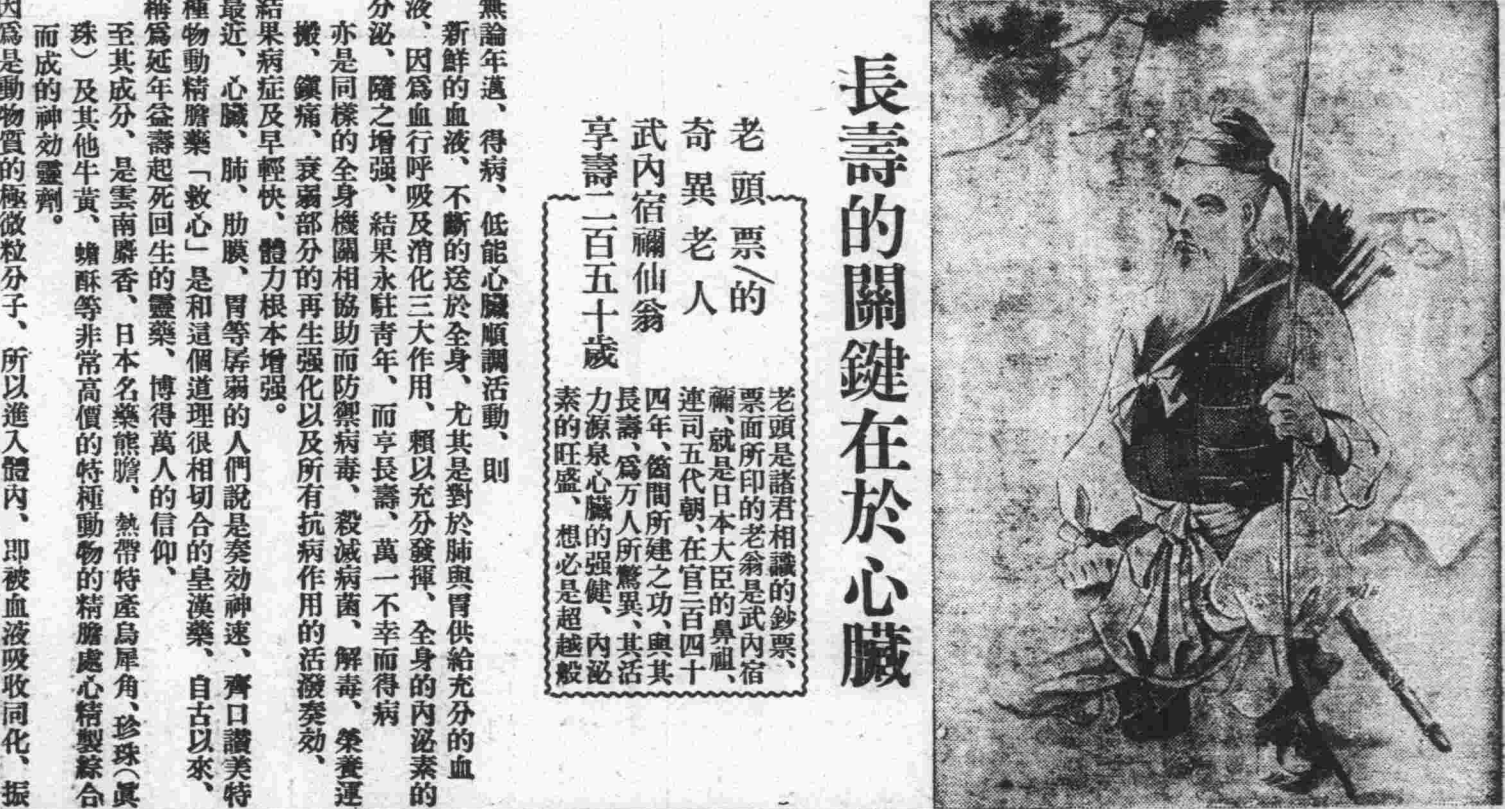 長壽的關鍵在於心臟
老頭票/的
奇異老人
武內宿禰仙翁
享壽二百五十歲
老頭是諸君相識的鈔票、
票面所印的老翁是武內宿
禰、就是日本大臣的鼻祖、
連司五代朝、在官二百四十
四年、箇間所建之功、與其
長壽、爲万人所驚異、其活
力源泉心臟的强健、內泌
素的旺盛、想必是超越般
無論年邁、得病、低能心臟順調活動、則
新鮮的血液、不斷的送於全身、尤其是對於肺與胃供給充分的血
液、因爲血行呼吸及消化三大作用、賴以充分發揮、全身的內泌素的
分泌、隨之增强、結果永駐青年、而享長壽、萬一不幸而得病
亦是同樣的全身機關相協助而防禦病毒、殺滅病菌、解毒、榮養運
搬、鎭痛、衰弱部分的再生强化以及所有抗病作用的活潑奏効、
結果病症及早輕快、體力根本增强。
最近、心臟、肺、肋膜、胃等孱弱的人們說是奏効神速、齊口讚美特
種物動精膽藥「救心」是和這個道理很相切合的皇漢藥、自古以來、
稱爲延年益壽起死回生的靈藥、博得萬人的信仰、
至其成分、是雲南麝香、日本名藥熊膽、熱帶特產烏犀角、珍珠(眞
珠)及其他牛黃、蟾酥等非常高價的特種動物的精膽處心精製綜合
而成的神効靈劑。
因爲是動物質的極微粒分子、所以進入體內、即被血液吸收同化、振